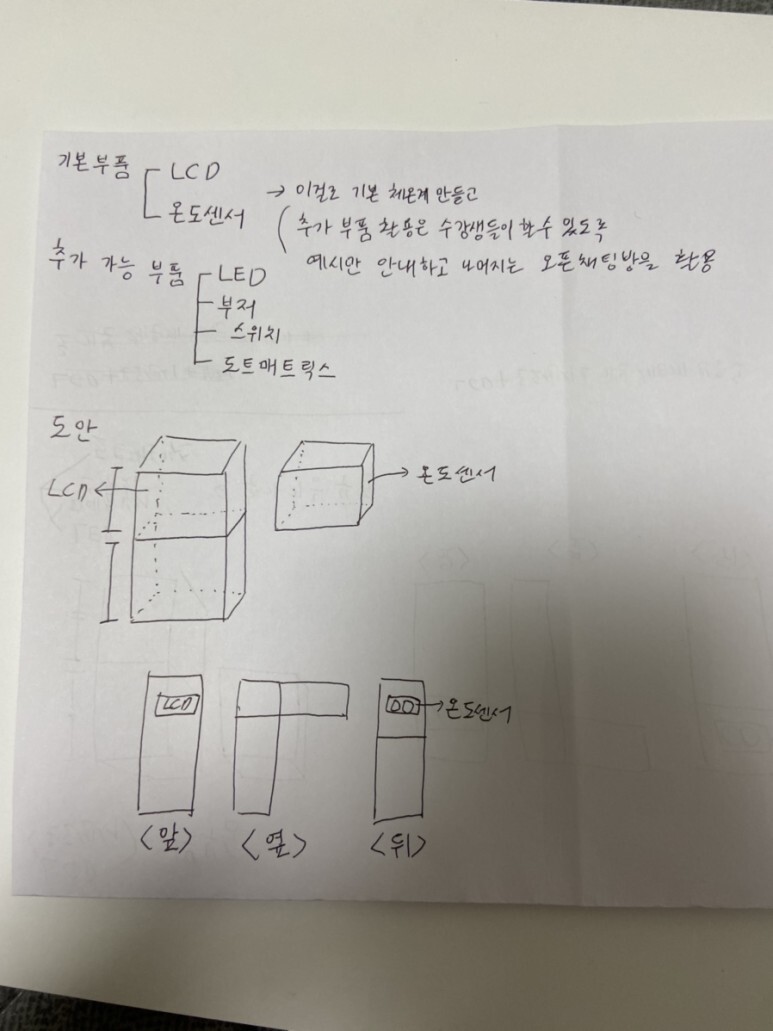 기본부품
LCD
온도센서
→ 이걸로 기본 체온계 만들고
추가 부품 활용은 수강생들이 할 수 있도록
예시만 안내하고 나머지는 오픈채팅방을 활용
추가 가능 부품
LED
부저
스위치
도트매트릭스
도안
LCD
온도센서
LCD
온도센서
<앞>
<옆>
<뒤>